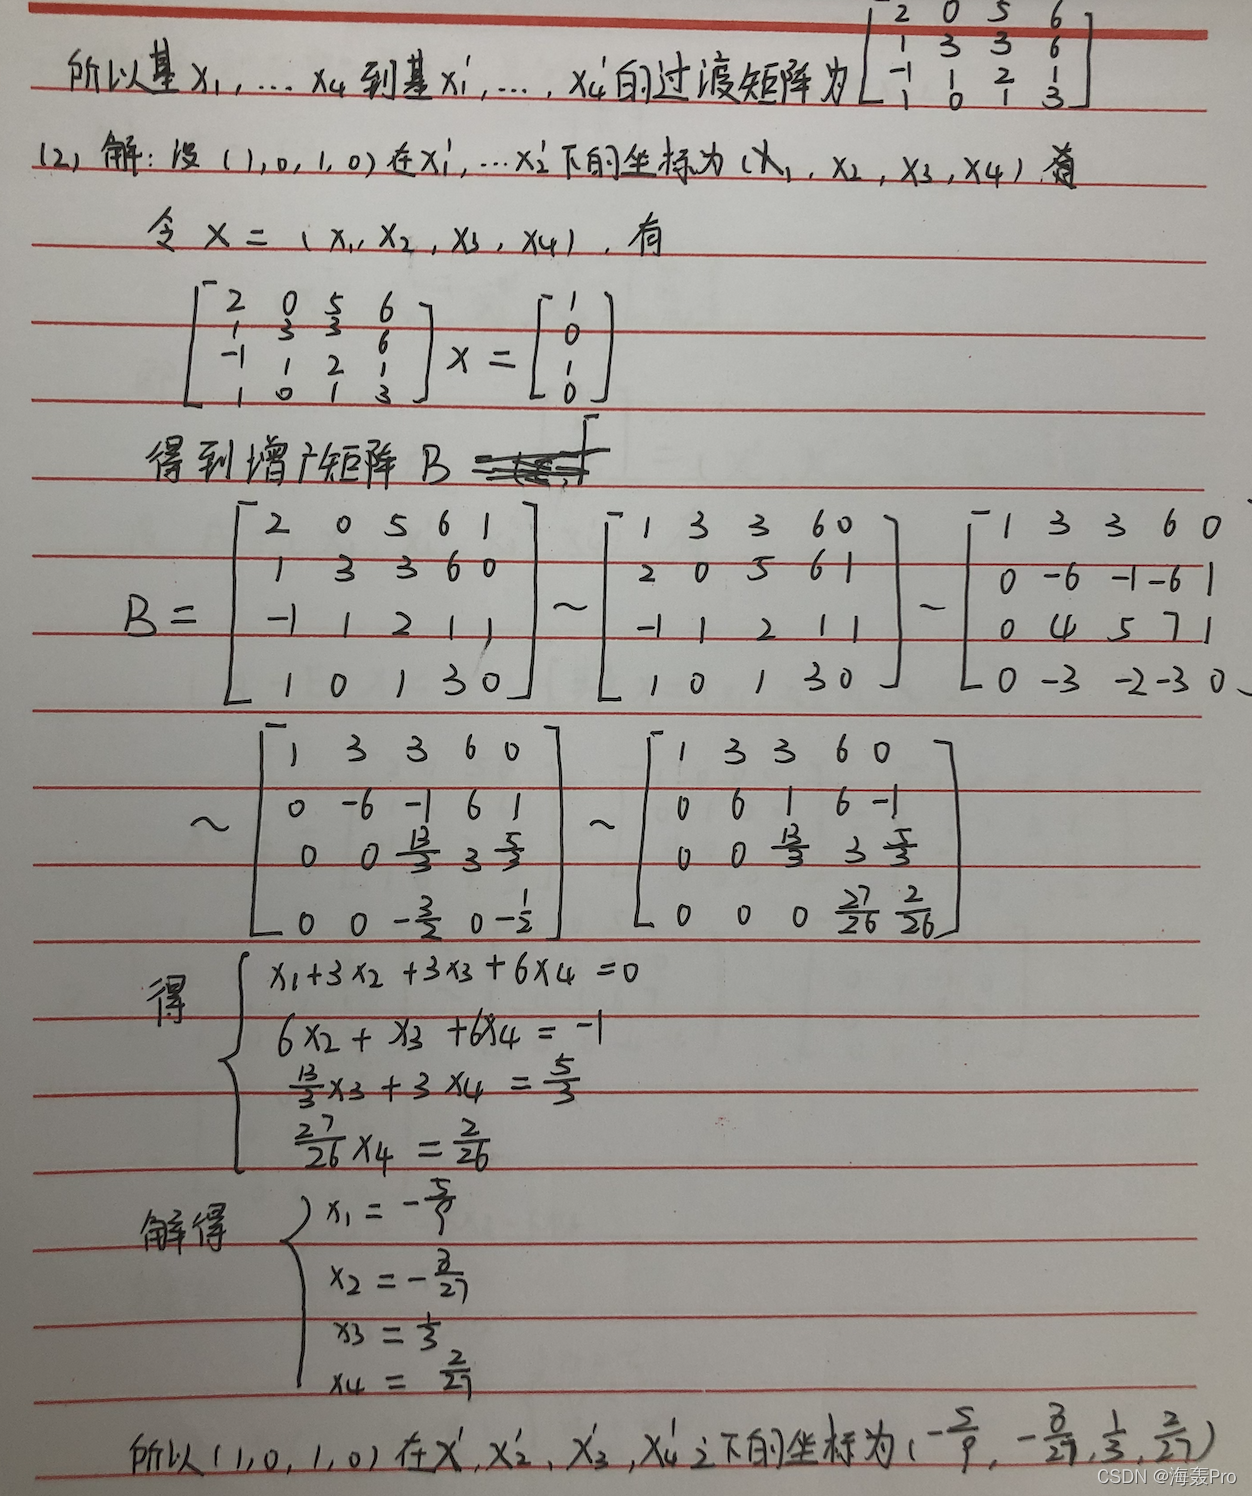 所以基 x₁, … x₄ 到基 x₁', …, x₄' 的过渡矩阵为 [2 0 5 6
1 3 3 6
-1 1 2 1
1 0 1 3]
(2) 解: 设 (1, 0, 1, 0) 在 x₁', … x₂' 下的坐标为 (x₁, x₂, x₃, x₄)
令 x = (x₁, x₂, x₃, x₄), 有
[2 0 5 6
1 3 3 6
-1 1 2 1
1 0 1 3] x = [1
0
1
0]
得到增广矩阵 B
B = [2 0 5 6 1
1 3 3 6 0
-1 1 2 1 1
1 0 1 3 0]
~ [1 3 3 6 0
2 0 5 6 1
-1 1 2 1 1
1 0 1 3 0]
~ [1 3 3 6 0
0 -6 -1 -6 1
0 4 5 7 1
0 -3 -2 -3 0]
~ [1 3 3 6 0
0 -6 -1 6 1
0 0 13/3 3 5/3
0 0 -3/2 0 -1/2]
~ [1 3 3 6 0
0 6 1 6 -1
0 0 13/3 3 5/3
0 0 0 27/26 2/26]
得 { x₁ + 3x₂ + 3x₃ + 6x₄ = 0
6x₂ + x₃ + 6x₄ = -1
13/3 x₃ + 3x₄ = 5/3
27/26 x₄ = 2/26
解得 { x₁ = -5/9
x₂ = -8/27
x₃ = 1/3
x₄ = 2/27
所以 (1, 0, 1, 0) 在 x', x₂', x₃', x₄' 之下的坐标为 (-5/9, -8/27, 1/3, 2/27)
CSDN @海轰Pro